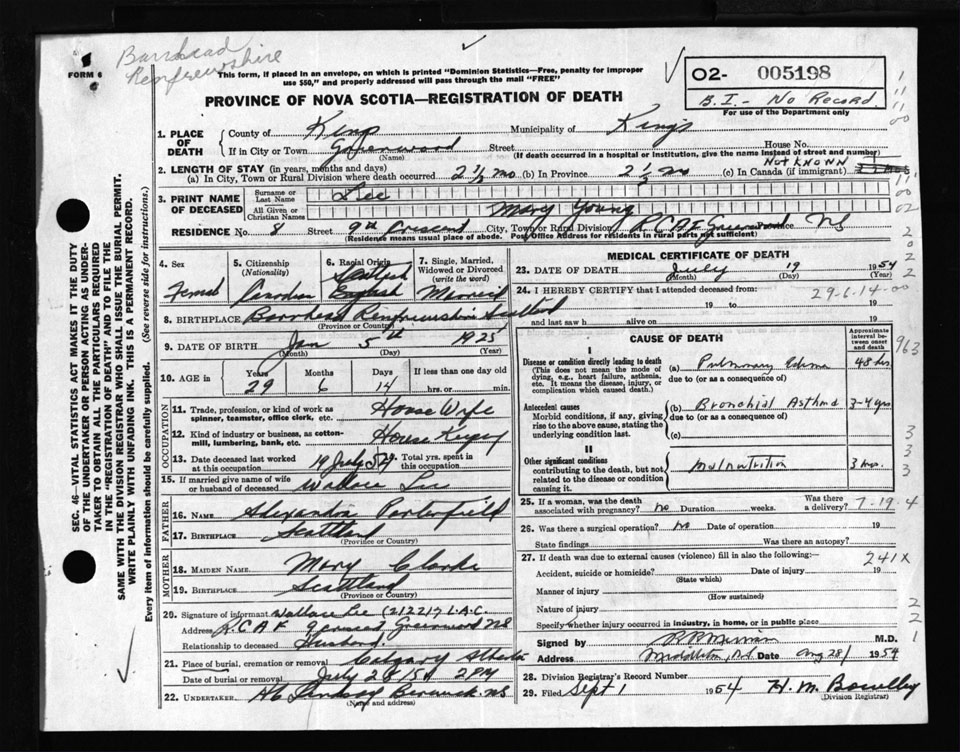 Barrhead
Renfrewshire
FORM 6
This form, if placed in an envelope, on which is printed "Dominion Statistics—Free, penalty for improper
use $50," and properly addressed will pass through the mail "FREE"
O2- 005198
B.I - No Record
For use of the Department only
PROVINCE OF NOVA SCOTIA—REGISTRATION OF DEATH
1. PLACE OF DEATH County of Kings Municipality of Kings
If in City or Town Greenwood (Name) Street House No.
(If death occurred in a hospital or institution, give the name instead of street and number)
2. LENGTH OF STAY (in years, months and days) NOT KNOWN
(a) In City, Town or Rural Division where death occurred 2 1/2 mo (b) In Province 2 1/2 m (c) In Canada (if immigrant)
3. PRINT NAME OF DECEASED Surname or Last Name Lee
All Given or Christian Names Mary Young
RESIDENCE No. 8 Street City, Town or Rural Division RCAF NS
(Residence means usual place of abode. Post Office Address for residents in rural parts not sufficient)
4. Sex Female
5. Citizenship (Nationality) Canadian
6. Racial Origin Scottish English
7. Single, Married, Widowed or Divorced (write the word) Married
8. BIRTHPLACE Barrhead Renfrewshire Scotland
(Province or Country)
9. DATE OF BIRTH Jan 5th 1925
(Month) (Day) (Year)
10. AGE in Years 29 Months 6 Days 14 If less than one day old hrs. or min.
OCCUPATION
11. Trade, profession, or kind of work as spinner, teamster, office clerk, etc. House Wife
12. Kind of industry or business, as cotton-mill, lumbering, bank, etc. House
13. Date deceased last worked at this occupation 19 July 54 Total yrs. spent in this occupation
15. If married give name of wife or husband of deceased Wallace Lee
FATHER
16. NAME Porterfield
17. BIRTHPLACE Scotland
(Province or Country)
MOTHER
18. MAIDEN NAME Mary Clarke
19. BIRTHPLACE Scotland
(Province or Country)
20. Signature of informant Wallace Lee (212217 L.A.C.
Address R.C.A.F Greenwood NS
Relationship to deceased Husband
21. Place of burial, cremation or removal Calgary Alberta
Date of burial or removal July 28/54 2 PM
22. UNDERTAKER Lindsay Berwick NS
(Name and address)
MEDICAL CERTIFICATE OF DEATH
23. DATE OF DEATH July 19 1954
(Month) (Day)
24. I HEREBY CERTIFY that I attended deceased from:
29-6-14-00
19 to 19
and last saw h alive on 19
CAUSE OF DEATH
Approximate interval between onset and death
963
I
Disease or condition directly leading to death (a) Pulmonary Edema 48 hrs.
(This does not mean the mode of dying, e.g., heart failure, asthenia, etc. It means the disease, injury, or complication which caused death.)
due to (or as a consequence of)
Antecedent causes (b) Bronchial Asthma 3-4 yrs
Morbid conditions, if any, giving rise to the above cause, stating the underlying condition last.
due to (or as a consequence of)
(c)
II
Other significant conditions contributing to the death, but not related to the disease or condition causing it.
Malnutrition 3 mos.
25. If a woman, was the death associated with pregnancy? No Duration weeks. Was there a delivery? 7-19-4
26. Was there a surgical operation? No Date of operation 19
State findings Was there an autopsy?
27. If death was due to external causes (violence) fill in also the following:— 241X
Accident, suicide or homicide? (State which) Date of injury 19
Manner of injury (How sustained)
Nature of injury
Specify whether injury occurred in industry, in home, or in public place
Signed by M.D.
Address Middleton, N.S. Date Aug 28/ 1954
28. Division Registrar's Record Number
29. Filed Sept 1 1954 H. M.
(Division Registrar)
SEC. 46—VITAL STATISTICS ACT MAKES IT THE DUTY
OF THE UNDERTAKER OR PERSON ACTING AS UNDER-
TAKER TO OBTAIN ALL THE PARTICULARS REQUIRED
IN THE "REGISTRATION OF DEATH" AND TO FILE THE
SAME WITH THE DIVISION REGISTRAR WHO SHALL ISSUE THE BURIAL PERMIT.
WRITE PLAINLY WITH UNFADING INK. THIS IS A PERMANENT RECORD.
Every item of Information should be carefully supplied. (See reverse side for instructions.)